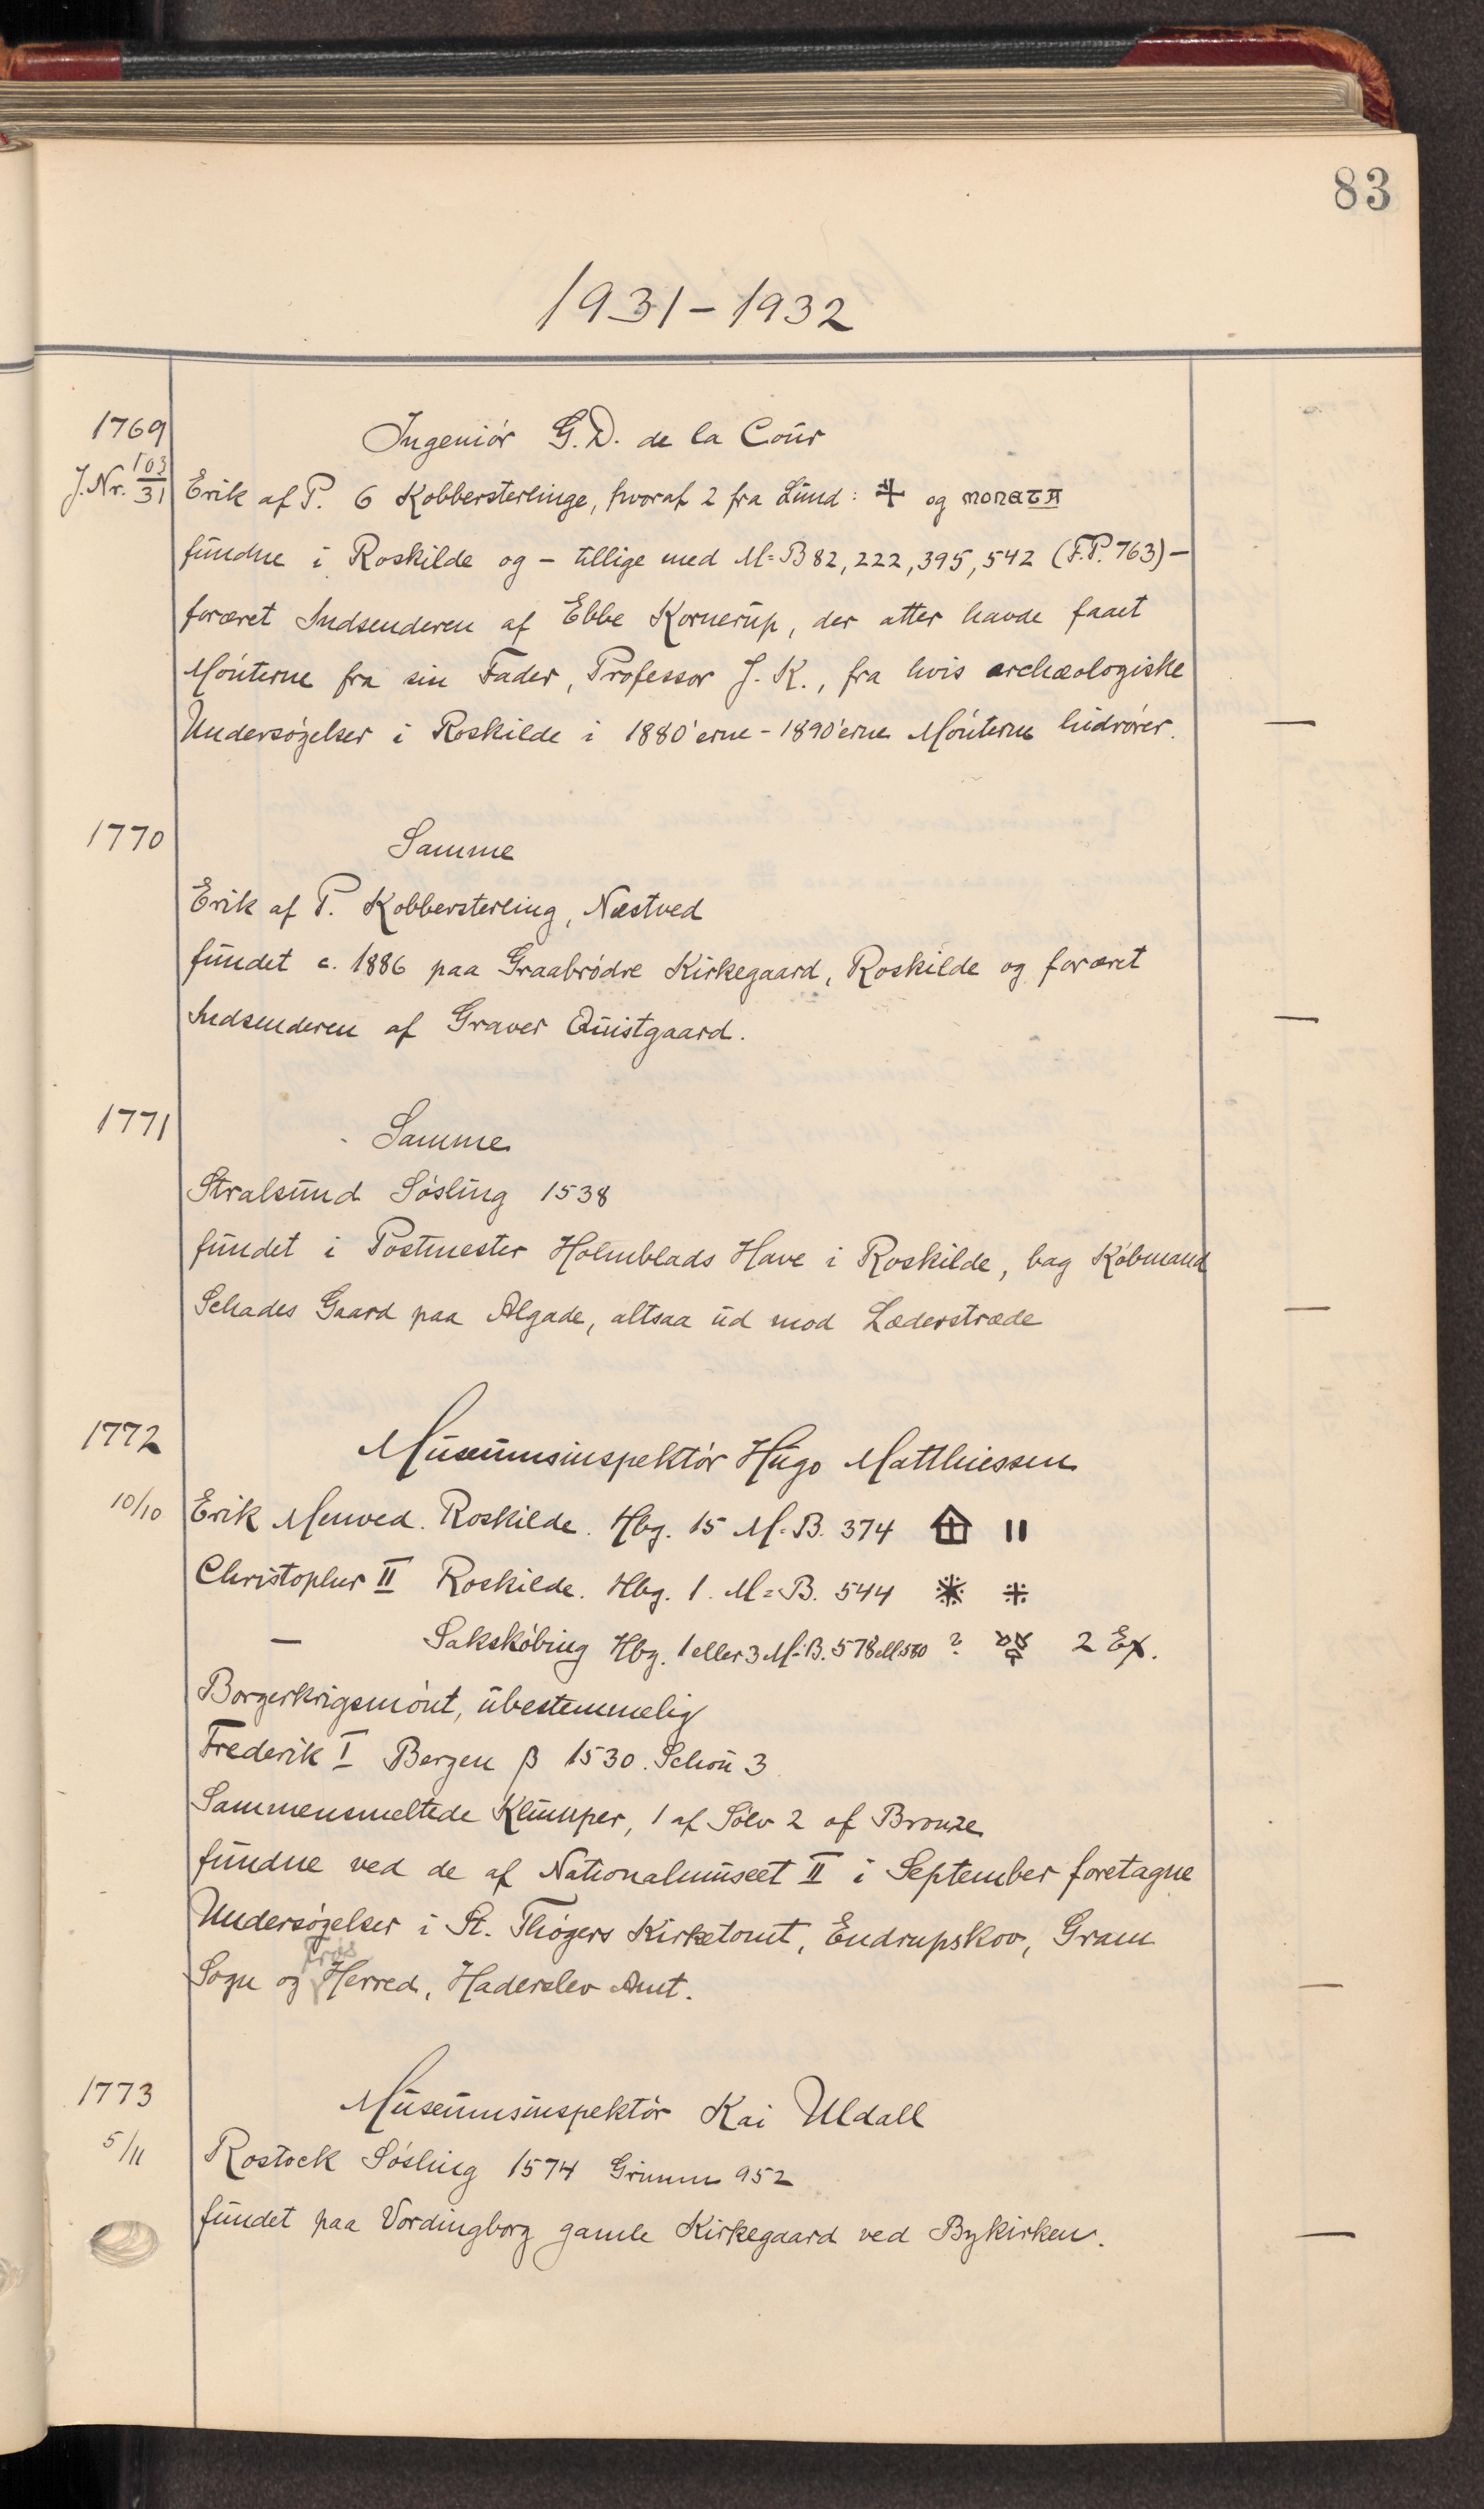 83
1931-1932
1769
Ingeniør G. D. de la Cour
J.Nr. 103/31
Erik af P. 6 Kobbersterlinge, hvoraf 2 fra Lund: og MONETA
fundne i Roskilde og - tillige med M=B 82, 222, 395, 542 (F.P. 763) -
foræret Indsenderen af Ebbe Kornerup, der atter havde faaet
Mønterne fra sin Fader, Professor J. K., fra hvis archæologiske
Undersøgelser i Roskilde i 1880'erne - 1890'erne Mønterne hidrører. —
1770
Samme
Erik af P. Kobbersterling, Næstved
fundet c. 1886 paa Graabrødre Kirkegaard, Roskilde og foræret
Indsenderen af Graver Quistgaard. —
1771
Samme
Stralsund Søsling 1538
fundet i Postmester Holmblads Have i Roskilde, bag Købmand
Schades Gaard paa Algade, altsaa ud mod Læderstræde —
1772
Museumsinspektør Hugo Matthiessen
10/10
Erik Menved. Roskilde. Hbg. 15 M=B. 374 II
Christopher II Roskilde. Hbg. 1. M=B. 544
— Sakskøbing Hbg. 1 eller 3 M=B. 578 ell 580 ? 2 Ex.
Borgerkrigsmønt, ubestemmelig
Frederik I Bergen β 1530. Schou 3
Sammensmeltede Klumper, 1 af Sølv 2 af Bronze
fundne ved de af Nationalmuseet II i September foretagne
Undersøgelser i St. Thøgers Kirketomt, Endrupskov, Gram
Sogn og Frøs Herred, Haderslev Amt. —
1773
Museumsinspektør Kai Uldall
5/11
Rostock Søsling 1574 Grimm 952
fundet paa Vordingborg gamle Kirkegaard ved Bykirken. —